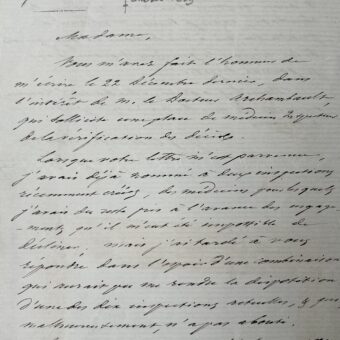 Madame,
Vous m'avez fait l'honneur de
m'écrire le 22 Décembre dernier, dans
l'intérêt de M. le Docteur Archambault,
qui sollicite une place de médecin Inspecteur
de la vérification des décès.
Lorsque votre lettre m'est parvenue,
j'avais déjà nommé à deux inspections
récemment créées, des médecins pour lesquels
j'avais du reste pris à l'avance des engage-
ments qu'il m'eut été impossible de
décliner. mais j'ai tardé à vous
répondre dans l'espoir d'une combinaison
qui aurait pu me rendre la disposition
d'une des dix inspections actuelles, & qui
malheureusement, n'a pas abouti.